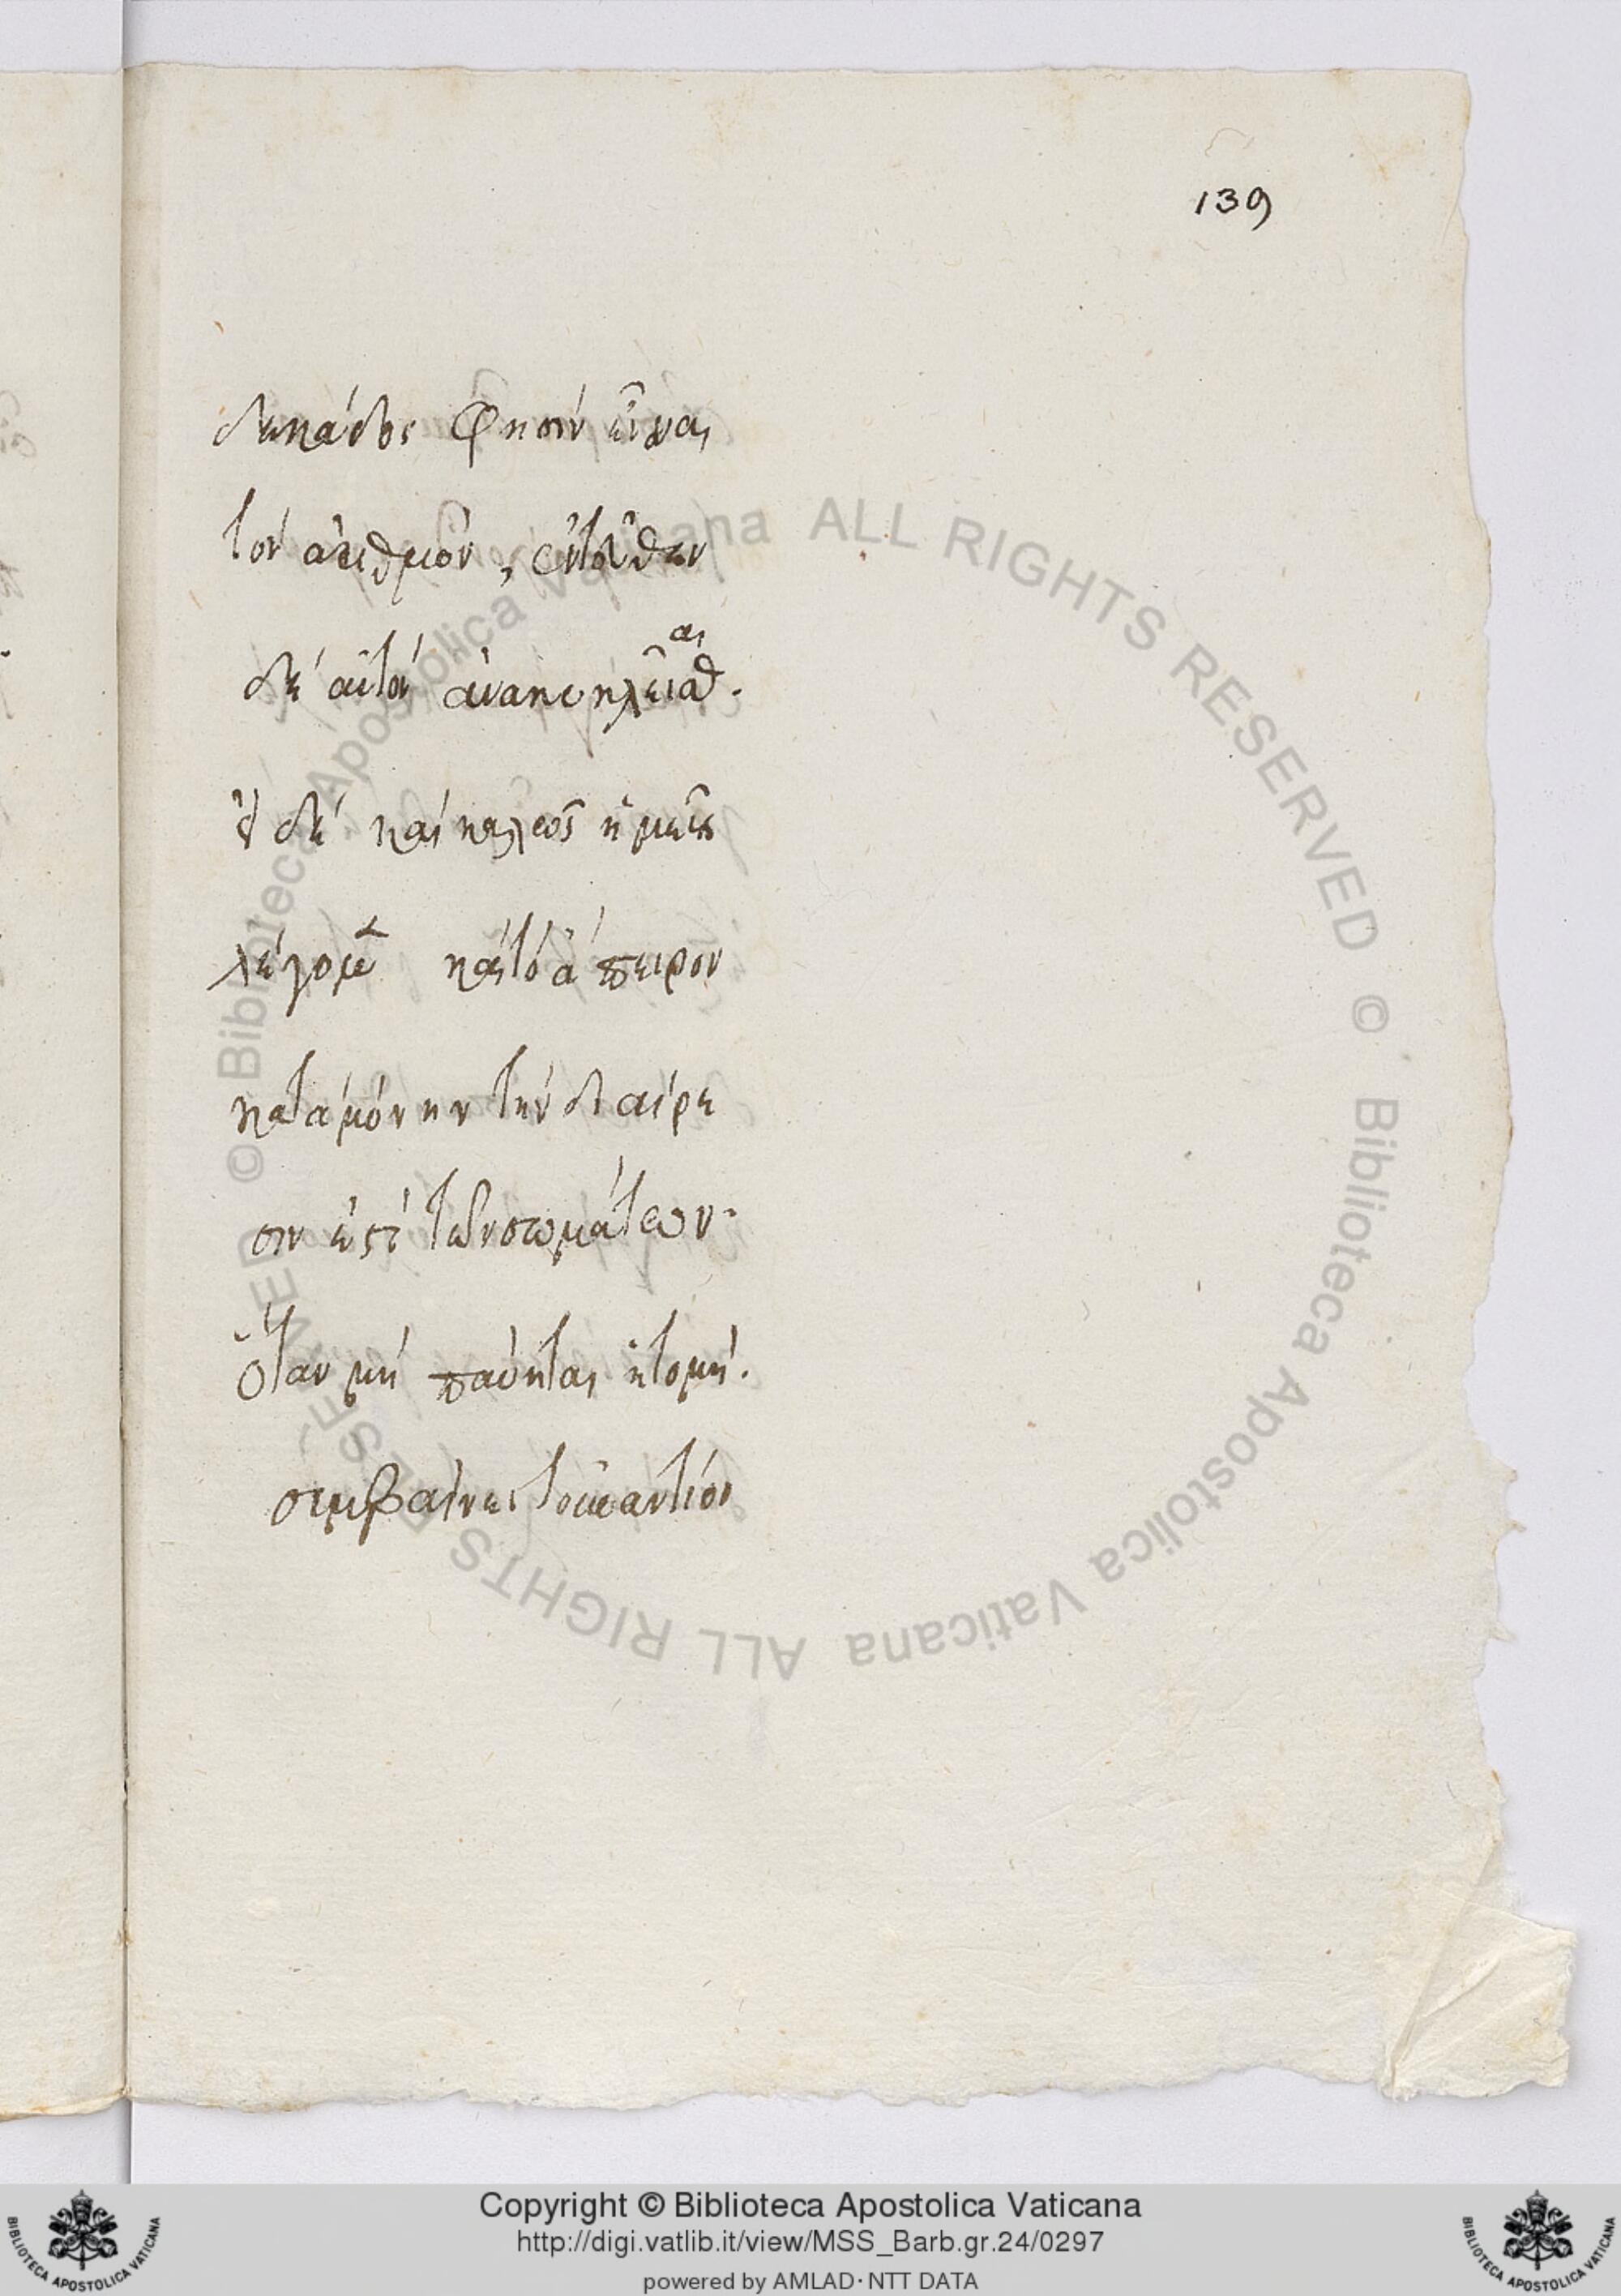 139
δεκάδος φησὶν εἶναι
τὸν ἀριθμὸν, ἐντεῦθεν
δὲ αὐτὸν ἀνακυκλεῖσθαι.
ὃ δὲ καὶ καλῶς ἡμεῖς
λέγομεν καὶ τὸ ἄπειρον
κατὰ μόνην τὴν διαίρε
σιν ἐστὶ τῶν σωμάτων.
Ὅταν μὴ παύηται ἡ τομή.
συμβαίνει τοὐναντίον
© Biblioteca Apostolica Vaticana ALL RIGHTS RESERVED © Biblioteca Apostolica Vaticana ALL RIGHTS RESERVED
Copyright © Biblioteca Apostolica Vaticana
http://digi.vatlib.it/view/MSS_Barb.gr.24/0297
powered by AMLAD·NTT DATA
BIBLIOTECA APOSTOLICA VATICANA
BIBLIOTECA APOSTOLICA VATICANA